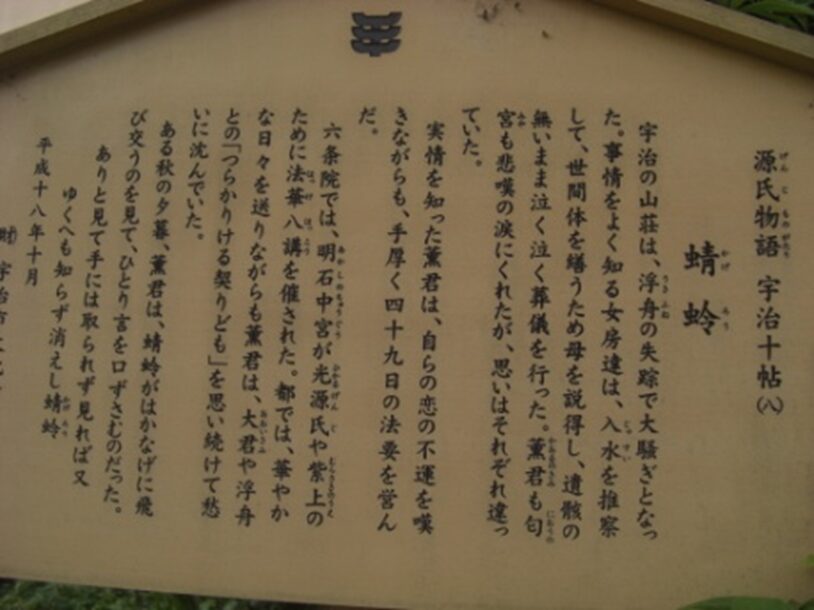 源氏物語 宇治十帖(八)
蜻蛉
宇治の山荘は、浮舟の失踪で大騒ぎとなっ
た。事情をよく知る女房達は、入水を推察
して、世間体を繕うため母を説得し、遺骸の
無いまま泣く泣く葬儀を行った。薫君も匂
宮も悲嘆の涙にくれたが、思いはそれぞれ違っ
ていた。
実情を知った薫君は、自らの恋の不運を嘆
きながらも、手厚く四十九日の法要を営ん
だ。
六条院では、明石中宮が光源氏や紫上の
ために法華八講を催された。都では、華やか
な日々を送りながらも薫君は、大君や浮舟
との「つらかりける契りども」を思い続けて愁
いに沈んでいた。
ある秋の夕暮、薫君は、蜻蛉がはかなげに飛
び交うのを見て、ひとり言を口ずさむのだった。
ありと見て手には取られず見れば又
ゆくへも知らず消えし蜻蛉
平成十八年十月
宇治市